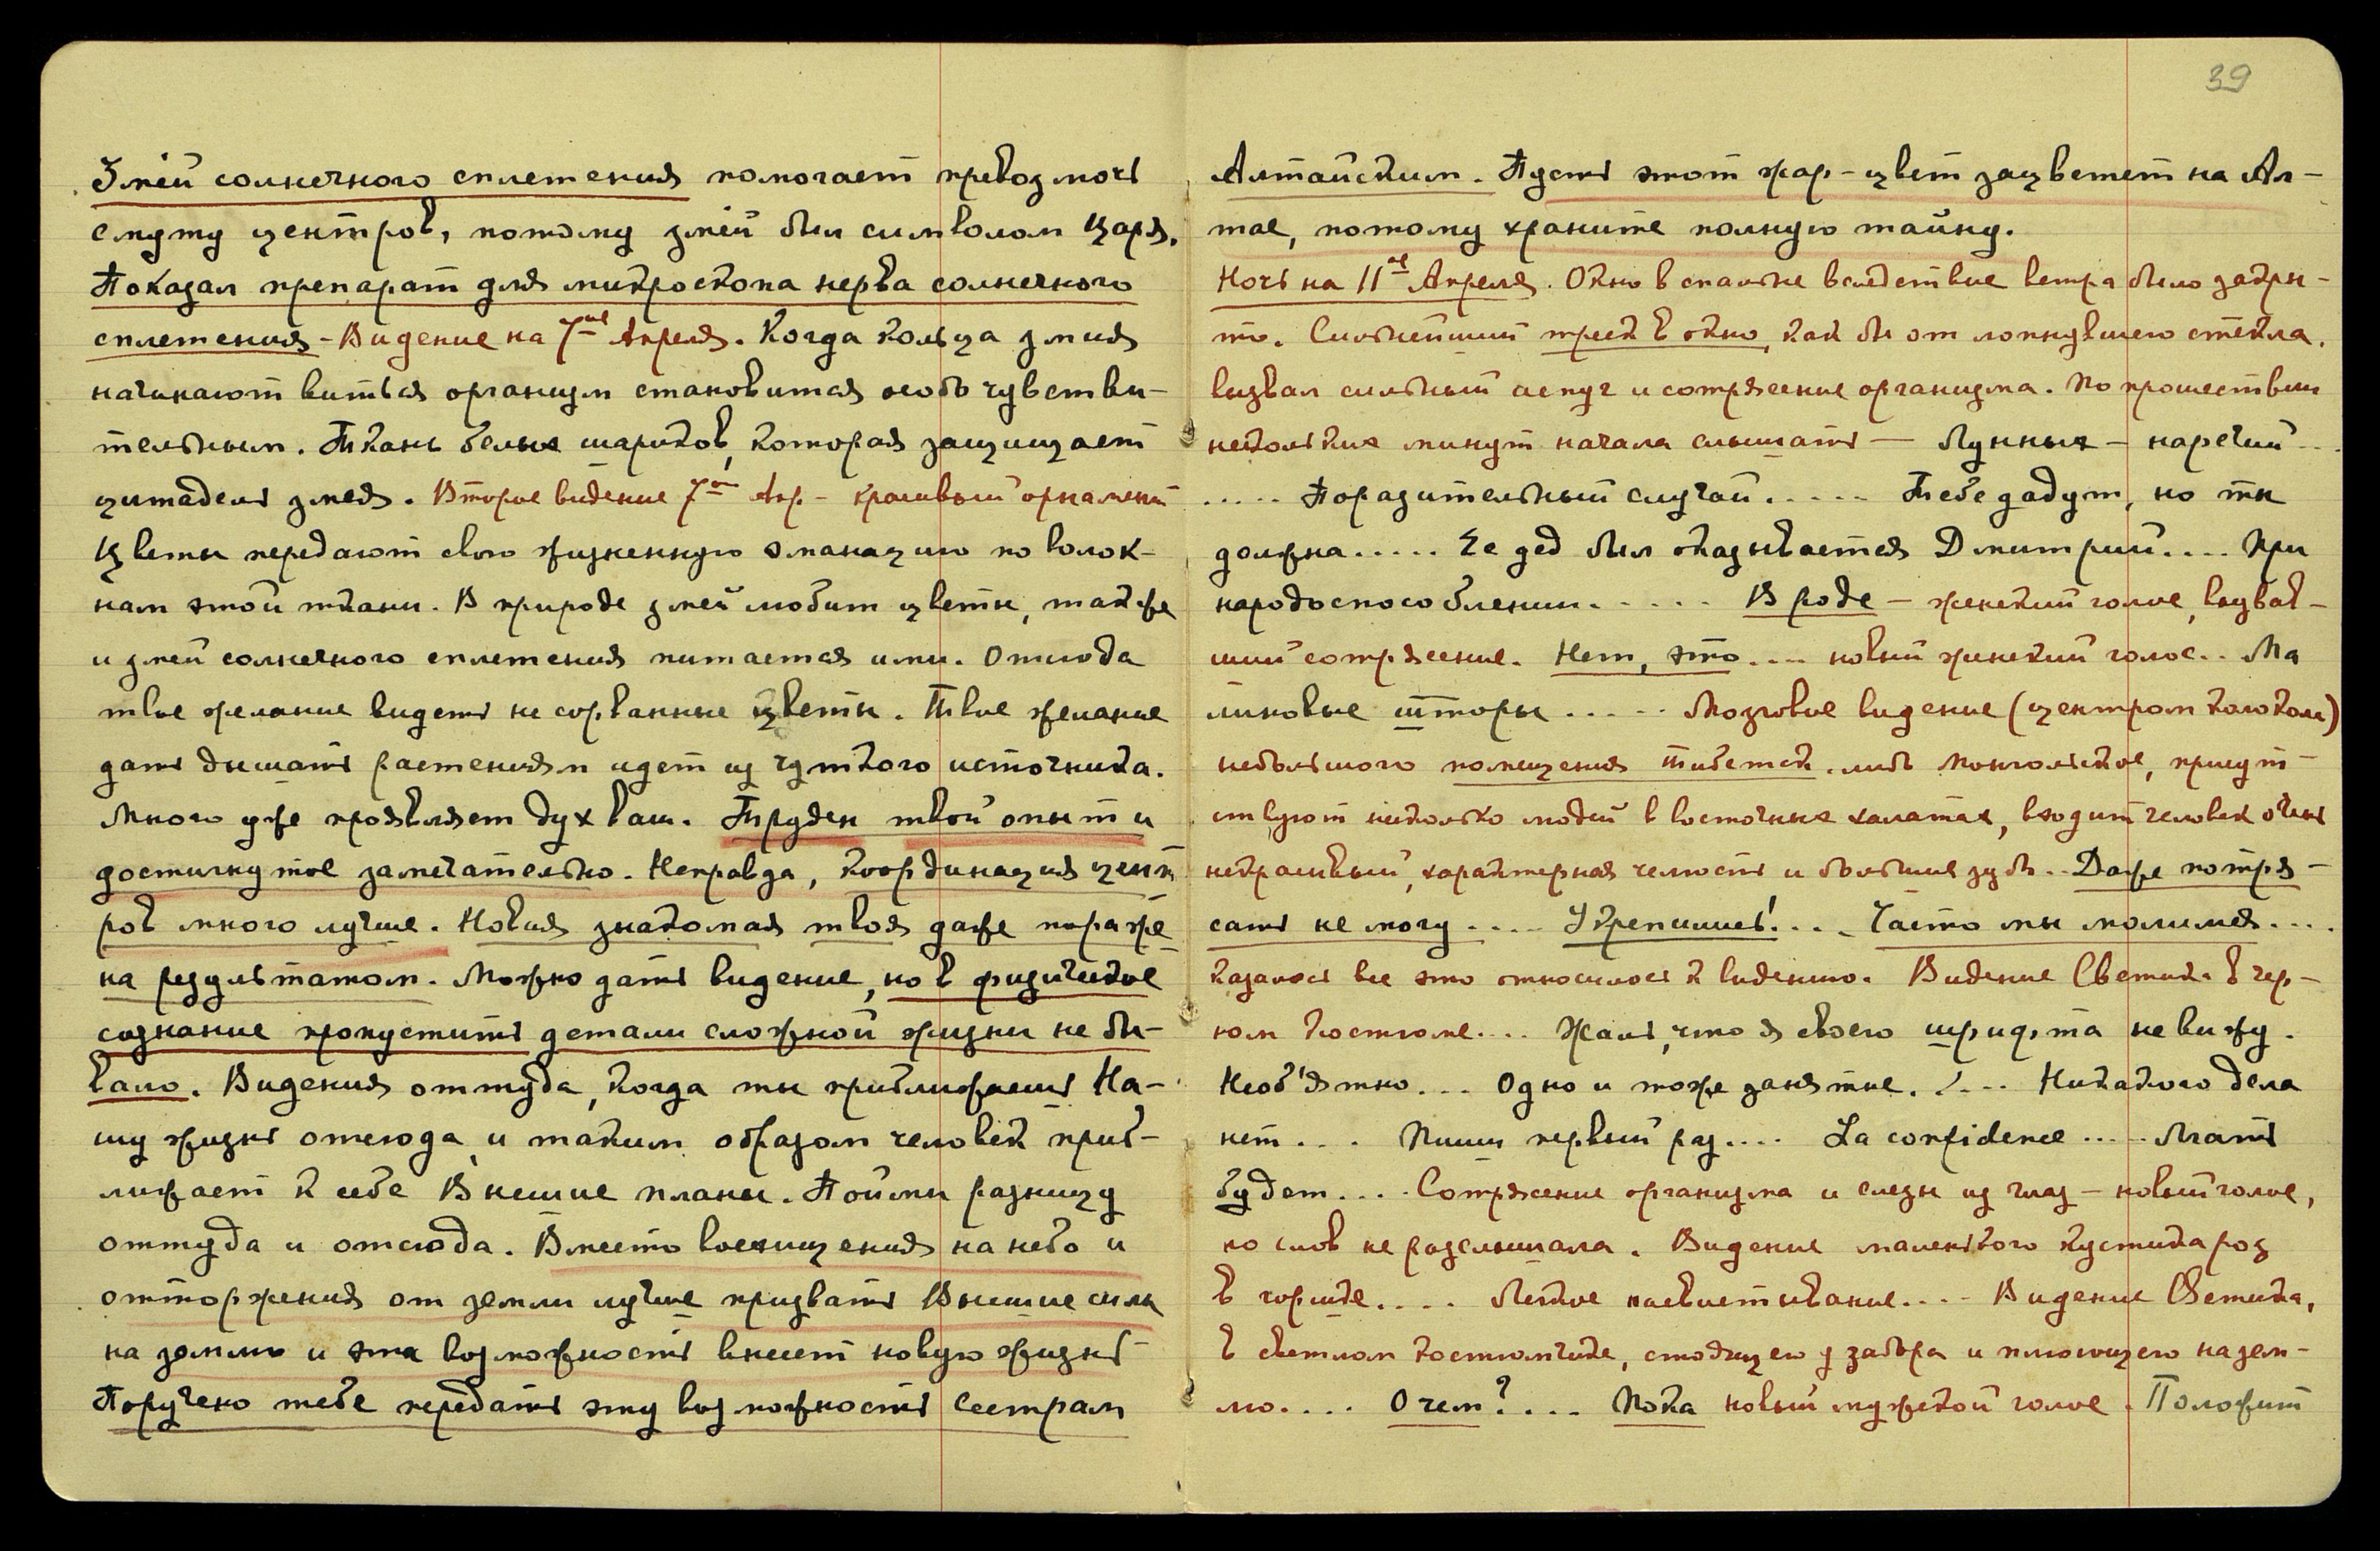 Змій солнечного сплетения помогает превозмочь
смуту центров, потому змей был символом Царя.
Показал препарат для микроскопа нерва солнечного
сплетения - Видение на 7ое Апреля. Когда кольца змия
начинают виться организм становится особо чувстви-
тельным. Ткань белых шариков, которая защищает
цитадель змея. Второе видение 7ое Апр - красивый орнамент
Цветы передают свою жизненную эманацию по волок-
нам этой ткани. В природе змей любит цветы, также
и змей солнечного сплетения питается ими. Отсюда
твое желание видеть не сорванные цветы. Твое желание
дать дышать растениям идет из чуткого источника.
Много уже проявляет дух ваш. Труден твой опыт и
достигнутое замечательно. Неправда, координация цент
ров много лучше. Новая знакомая твоя даже пораже
на результатом. Можно дать видение, но в физическое
сознание пропустить детали сложной жизни не бы-
вало. Видения оттуда, когда ты приближаешь На-
шу жизнь отсюда, и таким образом человек приб-
лижает к себе Высшие планы. Пойми разницу
оттуда и отсюда. Вместо восхищения на небо и
отторжения от земли лучше призвать Высшие силы
на землю и эта возможность внесет новую жизнь
Поручено тебе передать эту возможность Сестрам
39
Алтайским. Пусть этот жар-цвет зацветет на Ал-
тае, потому храните полную тайну.
Ночь на 11ое Апреля. Окно в спальне вследствие ветра было закры-
то. Сильнейший треск в окно, как бы от лопнувшего стекла,
вызвал сильный испуг и сотрясение организма. По прошествии
нескольких минут начала слышать — Лунных - наречий ..
..... Поразительный случай ..... Тебе дадут, но ты
должна ..... Ее дед был оказывается Дмитрий .... При
народоспособлении ..... В роде - женский голос, вызвав-
ший сотрясение. Нет, это .... новый женский голос .. Ма
линовые шторы ..... Мозговое видение (центром колокола)
небольшого помещения тибетск. либо монгольское, присут-
ствуют несколько людей в восточных халатах, входит человек очень
некрасивый, характерная челюсть и большие зубы .. Даже потря-
сать не могу .... Укрепились! .... Часто мы молимся ....
казалось все это относилось к видению. Видение Светика в чер-
ном костюме .... Жаль, что я своего шрифта не вижу.
Необ'ятно ... Одно и тоже занятие .... Никакого дела
нет .... Пиши первый раз .... La confidence ..... Лгать
будет .... Сотрясение организма и слезы из глаз - новый голос,
но слов не расслышала. Видение маленького кустика роз
в горшке .... Легкое насвистывание .... Видение Светика,
в светлом костюмчике, стоящего у забора и плюющего на зем-
лю .... О чем? .... Пока новый мужской голос. Положит